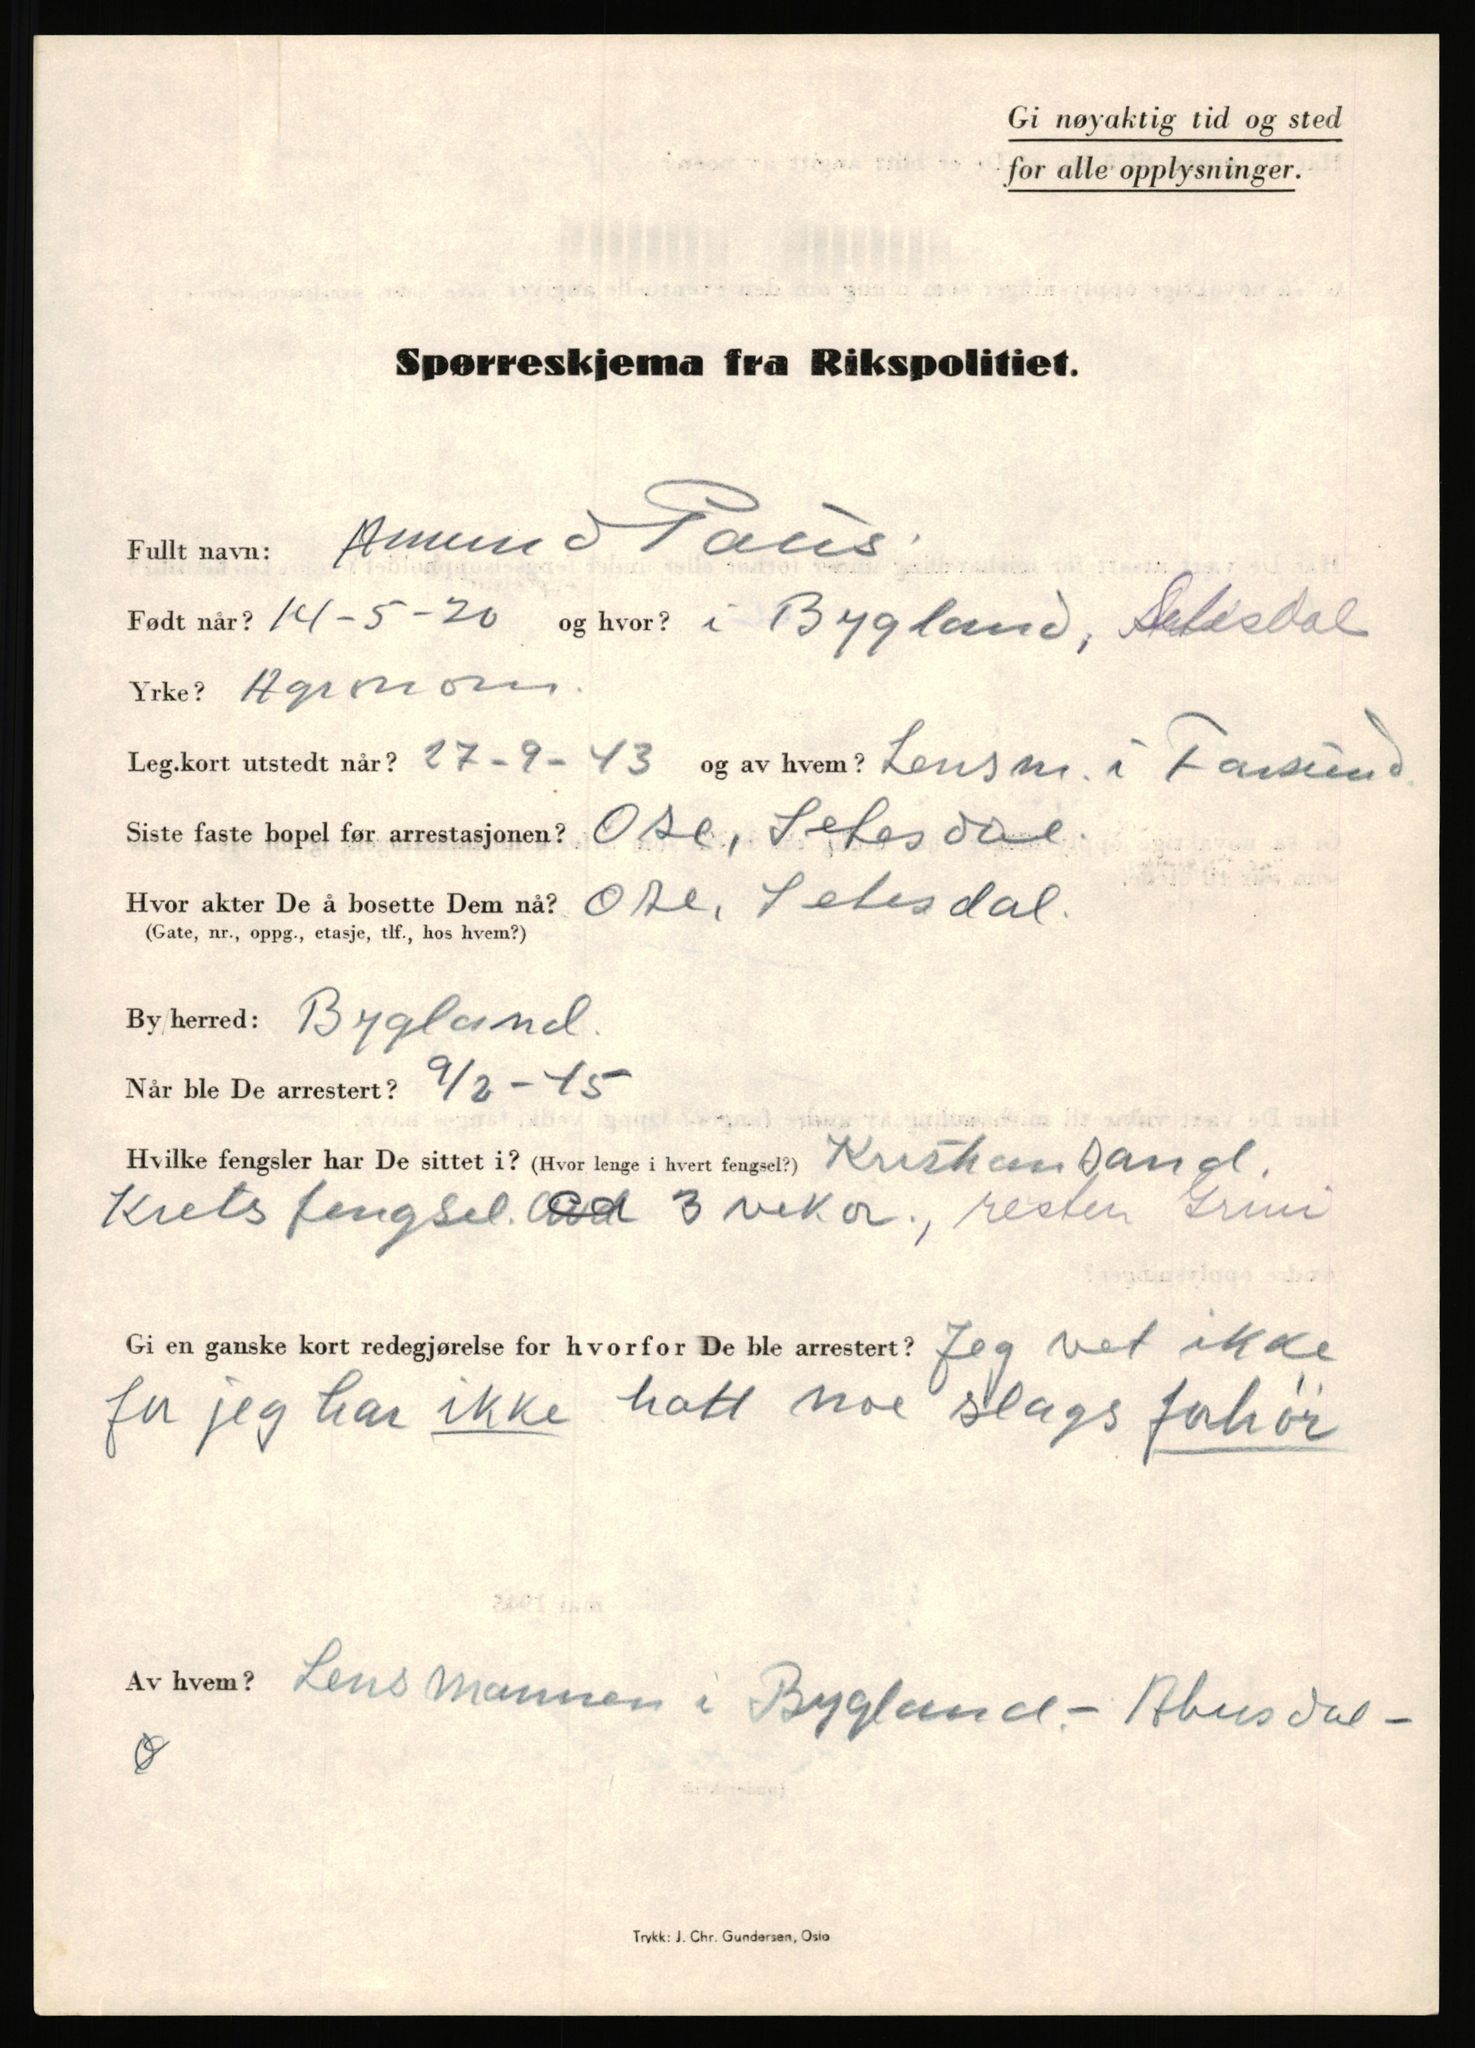 Gi nøyaktig tid og sted
for alle opplysninger.
Spørreskjema fra Rikspolitiet.
Fullt navn: Amund Paus.
Født når? 14-5-20 og hvor? i Bygland, Setesdal
Yrke? Agronom.
Leg.kort utstedt når? 27-9-43 og av hvem? Lensm. i Farsund.
Siste faste bopel før arrestasjonen? Ose, Setesdal.
Hvor akter De å bosette Dem nå? Ose, Setesdal.
(Gate, nr., oppg., etasje, tlf., hos hvem?)
By/herred: Bygland.
Når ble De arrestert? 9/2-45
Hvilke fengsler har De sittet i? (Hvor lenge i hvert fengsel?) Kristiansand.
Kretsfengsel. 3 veker., resten Grini
Gi en ganske kort redegjørelse for hvorfor De ble arrestert? Jeg vet ikke
for jeg har ikke hatt noe slags forhör
Av hvem? Lensmannen i Bygland.-
Trykk: J. Chr. Gundersen, Oslo